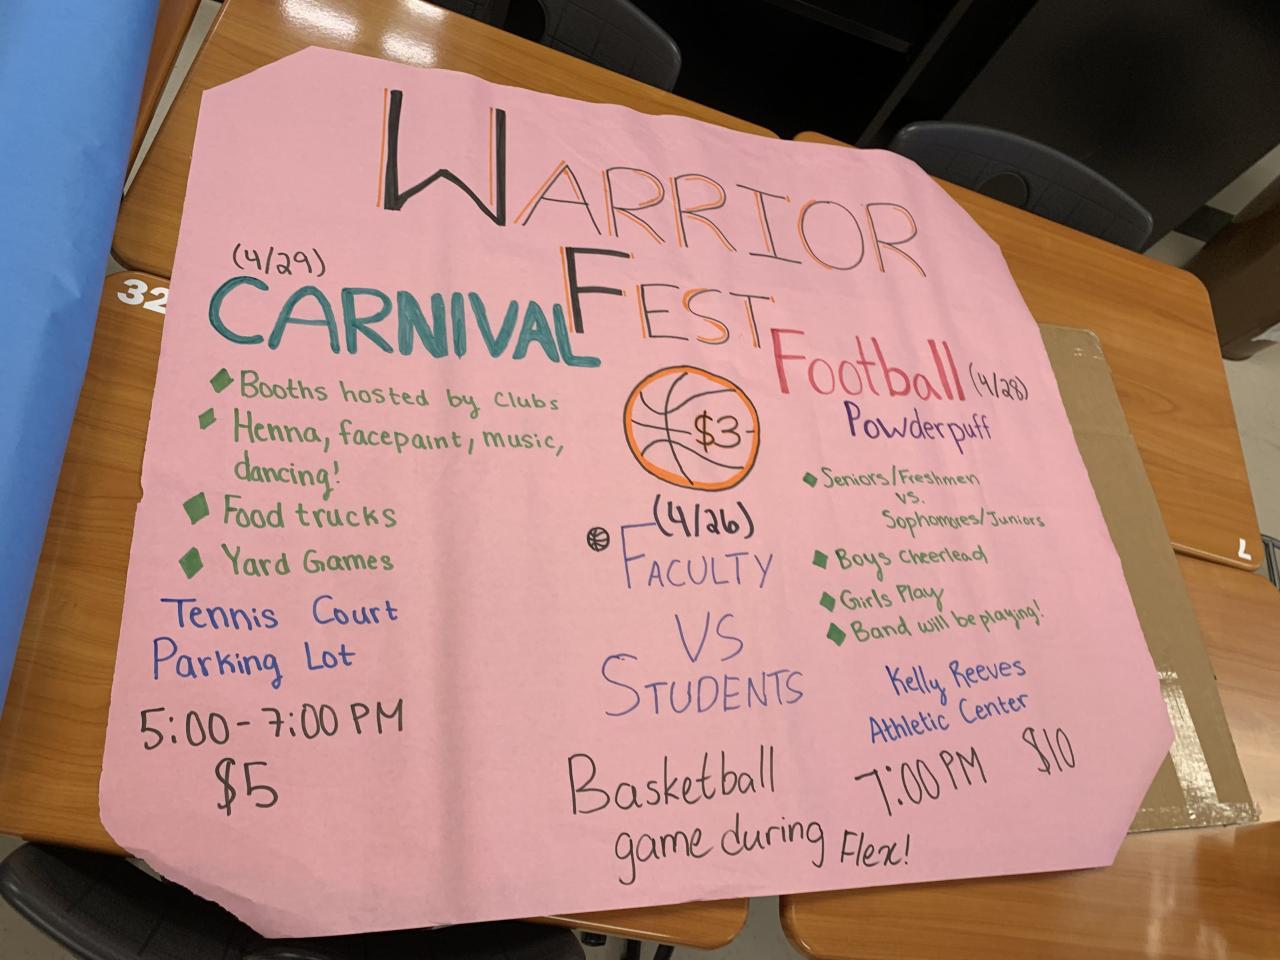 WARRIOR
FEST
(4/29)
CARNIVAL
Booths hosted by Clubs
Henna, facepaint, music,
dancing!
Food trucks
Yard Games
Tennis Court
Parking Lot
5:00-7:00 PM
$5
$3
(4/26)
FACULTY
VS
STUDENTS
Basketball
game during Flex!
Football (4/28)
Powderpuff
Seniors/Freshmen
vs.
Sophomores/Juniors
Boys Cheerlead
Girls Play
Band will be playing!
Kelly Reeves
Athletic Center
7:00 PM $10
32
L